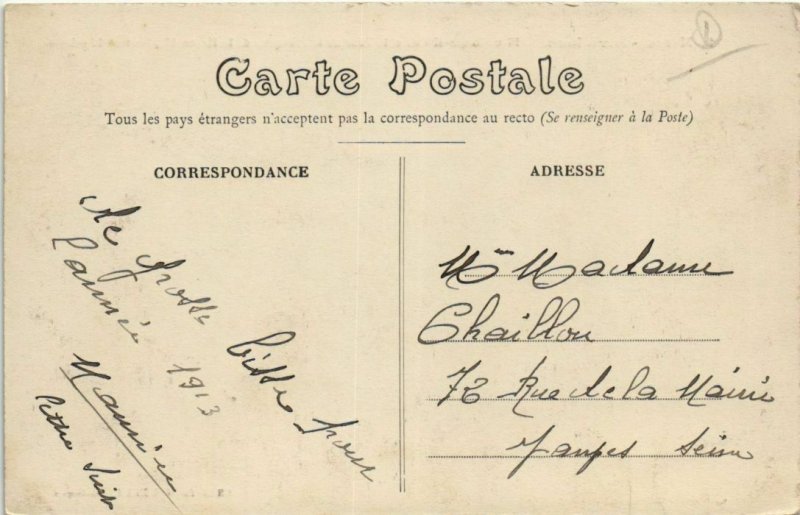 Carte Postale
Tous les pays étrangers n'acceptent pas la correspondance au recto (Se renseigner à la Poste)
CORRESPONDANCE
ADRESSE
De grosse bisse pour
l'année 1913
Maurice
Mr Madame
Chaillou
72 Rue de la Mairie
Seine